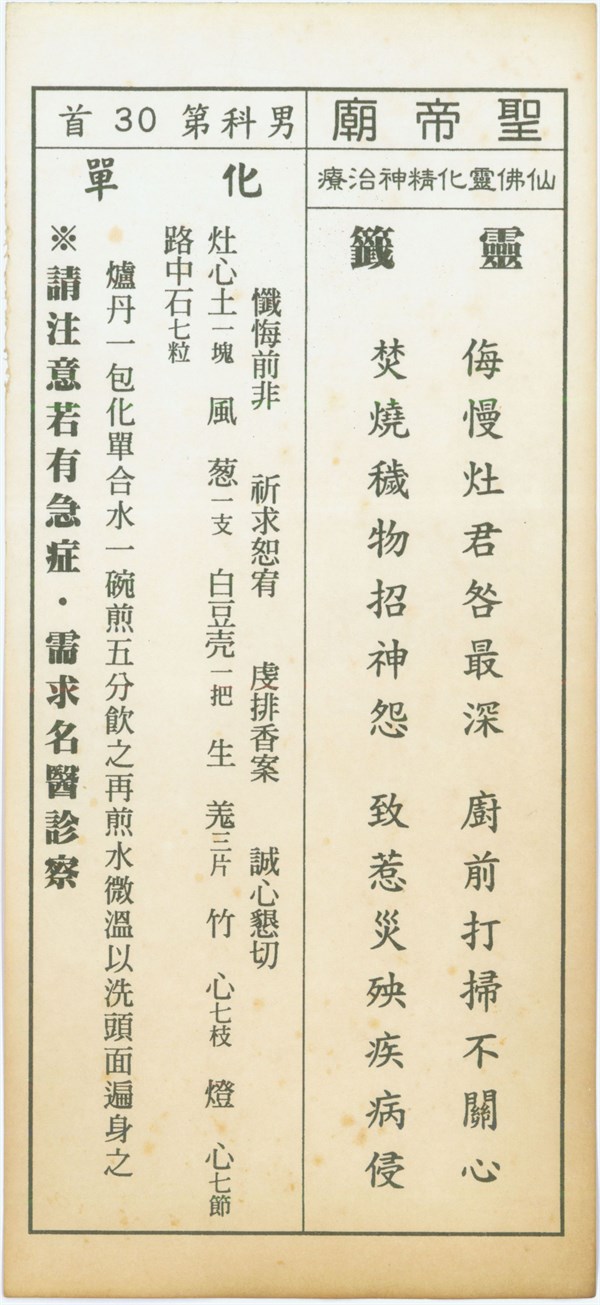 聖帝廟
仙佛靈化精神治療
靈籤
侮慢灶君咎最深　廚前打掃不關心
焚燒穢物招神怨　致惹災殃疾病侵
男科第30首
化單
懺悔前非　祈求恕宥　虔排香案　誠心懇切
灶心土一塊　風葱一支　白豆壳一把　生羗三片　竹心七枝　燈心七節
路中石七粒
爐丹一包化單合水一碗煎五分飲之再煎水微溫以洗頭面遍身之
※請注意若有急症・需求名醫診察